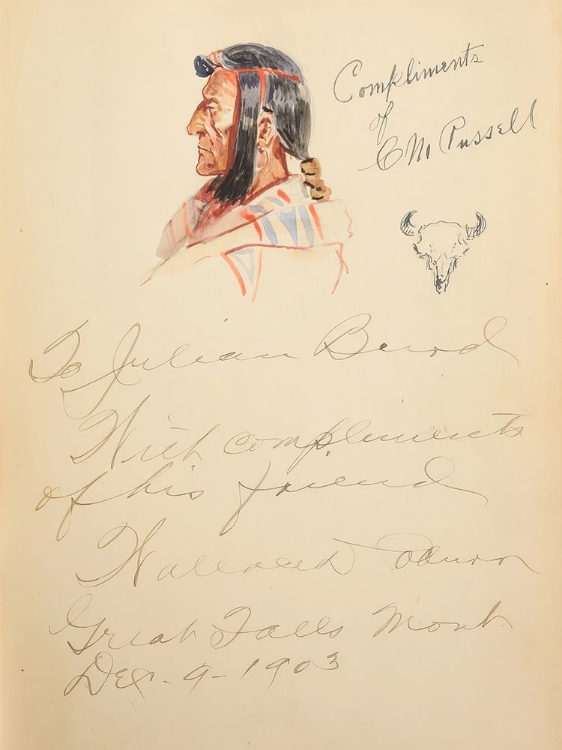 Compliments
of
CM Russell
To Julian
With compliments
of his friend
Great Falls Mont
Dec. 9-1903